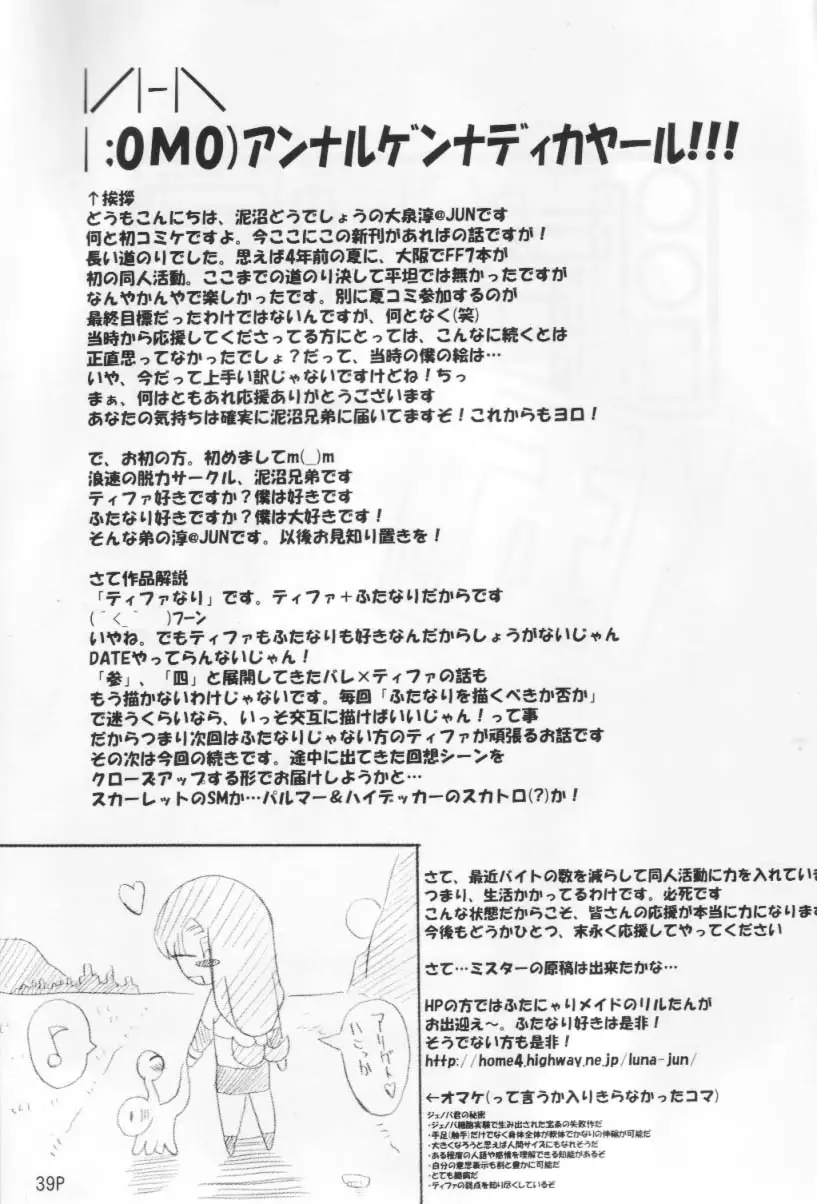 |／|－|＼
| :OMO)アンナルゲンナディカヤール!!!
↑挨拶
どうもこんにちは、泥沼どうでしょうの大泉淳@JUNです
何と初コミケですよ。今ここにこの新刊があればの話ですが！
長い道のりでした。思えば4年前の夏に、大阪でFF7本が
初の同人活動。ここまでの道のり決して平坦では無かったですが
なんやかんやで楽しかったです。別に夏コミ参加するのが
最終目標だったわけではないんですが、何となく(笑)
当時から応援してくださってる方にとっては、こんなに続くとは
正直思ってなかったでしょ？だって、当時の僕の絵は…
いや、今だって上手い訳じゃないですけどね！ちっ
まぁ、何はともあれ応援ありがとうございます
あなたの気持ちは確実に泥沼兄弟に届いてますぞ！これからもヨロ！
で、お初の方。初めましてm(_)m
浪速の脱力サークル、泥沼兄弟です
ティファ好きですか？僕は好きです
ふたなり好きですか？僕は大好きです！
そんな弟の淳@JUNです。以後お見知り置きを！
さて作品解説
「ティファなり」です。ティファ＋ふたなりだからです
(´<_｀　)フーン
いやね。でもティファもふたなりも好きなんだからしょうがないじゃん
DATEやってらんないじゃん！
「参」、「四」と展開してきたバレ×ティファの話も
もう描かないわけじゃないです。毎回「ふたなりを描くべきか否か」
で迷うくらいなら、いっそ交互に描けばいいじゃん！って事
だからつまり次回はふたなりじゃない方のティファが頑張るお話です
その次は今回の続きです。途中に出てきた回想シーンを
クローズアップする形でお届けしようかと…
スカーレットのSMか…パルマー＆ハイデッカーのスカトロ(?)か！
さて、最近バイトの数を減らして同人活動に力を入れていま
つまり、生活かかってるわけです。必死です
こんな状態だからこそ、皆さんの応援が本当に力になります
今後もどうかひとつ、末永く応援してやってください
さて…ミスターの原稿は出来たかな…
HPの方ではふたにゃりメイドのリルたんが
お出迎え～。ふたなり好きは是非！
そうでない方も是非！
http://home4.highway.ne.jp/luna-jun/
←オマケ(って言うか入りきらなかったコマ)
ジェノバ君の秘密
・ジェノバ細胞実験で生み出された宝条の失敗作だ
・手足(触手)だけでなく身体全体が軟体でかなりの伸縮が可能だ
・大きくなろうと思えば人間サイズにもなれそうだ
・ある程度の人語や感情を理解できる知能があるぞ
・自分の意思表示も割と豊かに可能だ
・とても臆病だ
・ティファの弱点を知り尽くしているぞ
♪
39P